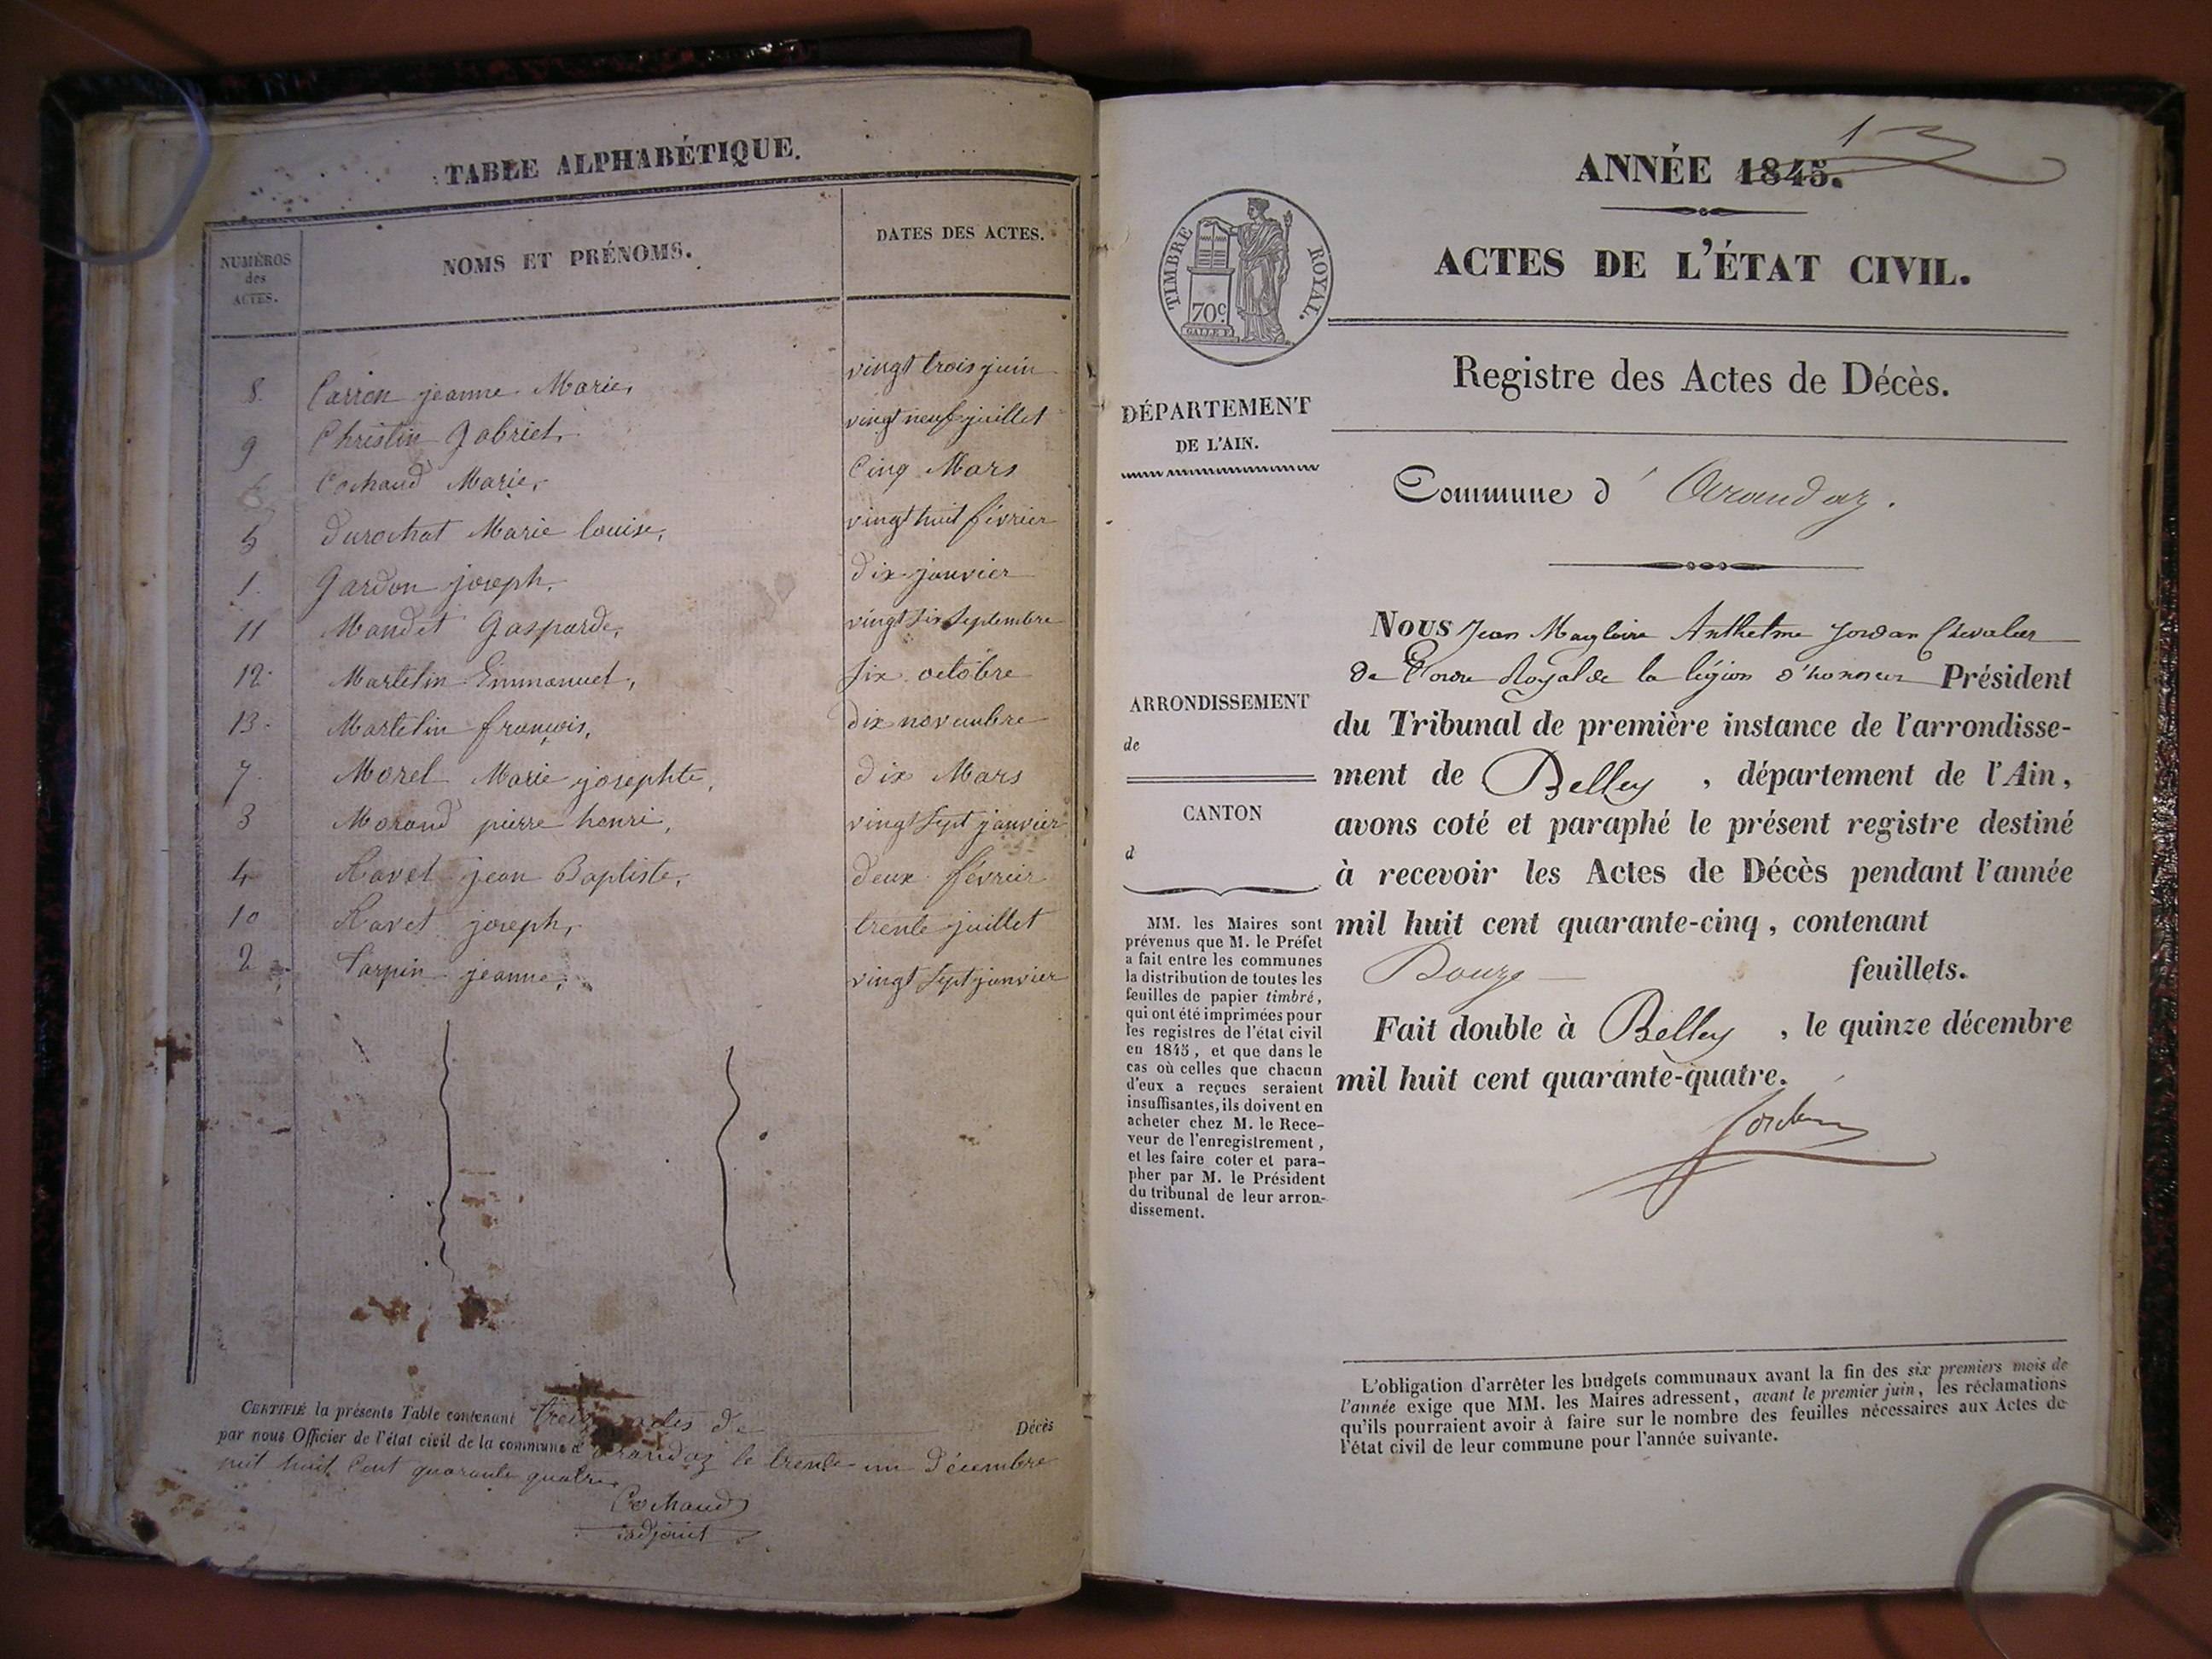 TABLE ALPHABÉTIQUE.
NUMÉROS
des
ACTES.
NOMS ET PRÉNOMS.
DATES DES ACTES.
8. Carron jeanne Marie, vingt trois juin
9 Christin Gabriel, vingt neuf juillet
6 Cochaud Marie, Cinq Mars
5 durochat Marie louise, vingt huit février
1. Gardon joseph, dix janvier
11 Mandet Gasparde, vingt six Septembre
12. Martelin Emmanuel, six octobre
13. Martelin françois, dix novembre
7. Morel Marie josephte, dix Mars
3 Morand pierre henri, vingt sept janvier
4 Ravet jean Baptiste, deux février
10 Ravet joseph, trente juillet
2 Tarpin jeanne, vingt sept janvier
CERTIFIÉ la présente Table contenant treize actes de Décès
par nous Officier de l'état civil de la commune d'Arandaz le trente un Décembre
mil huit Cent quarante quatre
Cochaud
adjoint
1
ANNÉE 1845.
TIMBRE ROYAL.
70c.
ACTES DE L'ÉTAT CIVIL.
Registre des Actes de Décès.
DÉPARTEMENT
DE L'AIN.
Commune d'Arandaz.
ARRONDISSEMENT
de
CANTON
d
MM. les Maires sont
prévenus que M. le Préfet
a fait entre les communes
la distribution de toutes les
feuilles de papier timbré,
qui ont été imprimées pour
les registres de l'état civil
en 1845, et que dans le
cas où celles que chacun
d'eux a reçues seraient
insuffisantes, ils doivent en
acheter chez M. le Rece-
veur de l'enregistrement,
et les faire coter et para-
pher par M. le Président
du tribunal de leur arron-
dissement.
Nous Jean Magloire Anthelme Jordan Chevalier
de l'ordre Royal de la légion d'honneur Président
du Tribunal de première instance de l'arrondisse-
ment de Belley, département de l'Ain,
avons coté et paraphé le présent registre destiné
à recevoir les Actes de Décès pendant l'année
mil huit cent quarante-cinq, contenant
Douze feuillets.
Fait double à Belley, le quinze décembre
mil huit cent quarante-quatre.
Jordan
L'obligation d'arrêter les budgets communaux avant la fin des six premiers mois de
l'année exige que MM. les Maires adressent, avant le premier juin, les réclamations
qu'ils pourraient avoir à faire sur le nombre des feuilles nécessaires aux Actes de
l'état civil de leur commune pour l'année suivante.